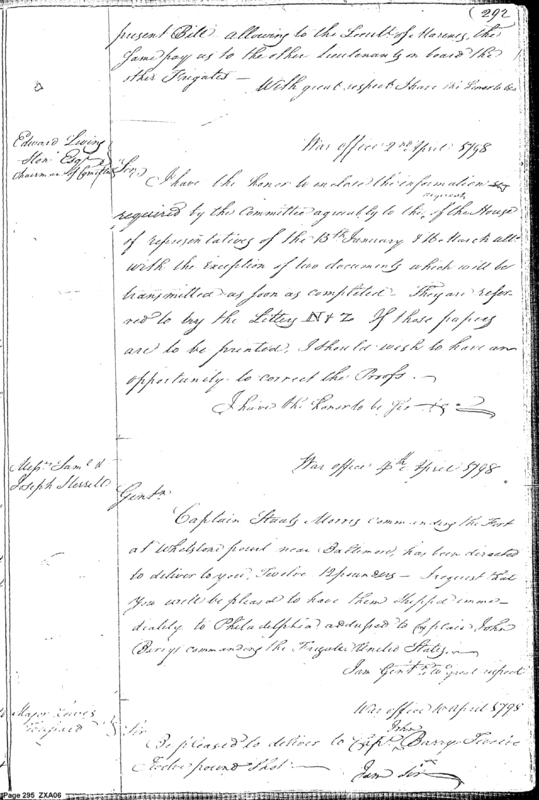 (292
present Bill allowing to the Lieuts of Marines, the
Same pay as to the other Lieutenants on board the
other Frigates —
With great respect I have the honor to be
Edward Livings
ton Esqr
Chairman of Committee
War office 2nd April 1798
Sir,
I have the honor to enclose the information
required by the Committee agreeably to the requests of the House
of representatives of the 15th January & 16 March ult.
with the exception of two documents which will be
transmitted as soon as completed. They are refer-
red to by the Letters N & Z If those papers
are to be printed, I should wish to have an
opportunity to correct the Proofs. —
I have the honor to be Sir &c
Messrs Saml &
Joseph Sterrett
War office 4th April 1798
Gentn
Captain Staats Morris commanding the Fort
at Whetstone point near Baltimore, has been directed
to deliver to you, Twelve 12 pounders — I request that
You will be pleased to have them shipped imme-
diately to Philadelphia addressed to Captain John
Barry commanding the Frigate United States. —
I am Gentn with great respect
Major Lewis
Tousard
War office 10 April 1798
Sir
Be pleased to deliver to Capt John Barry Twelve
Twelve pound Shot —
I am Sir
Page 295 ZXA06